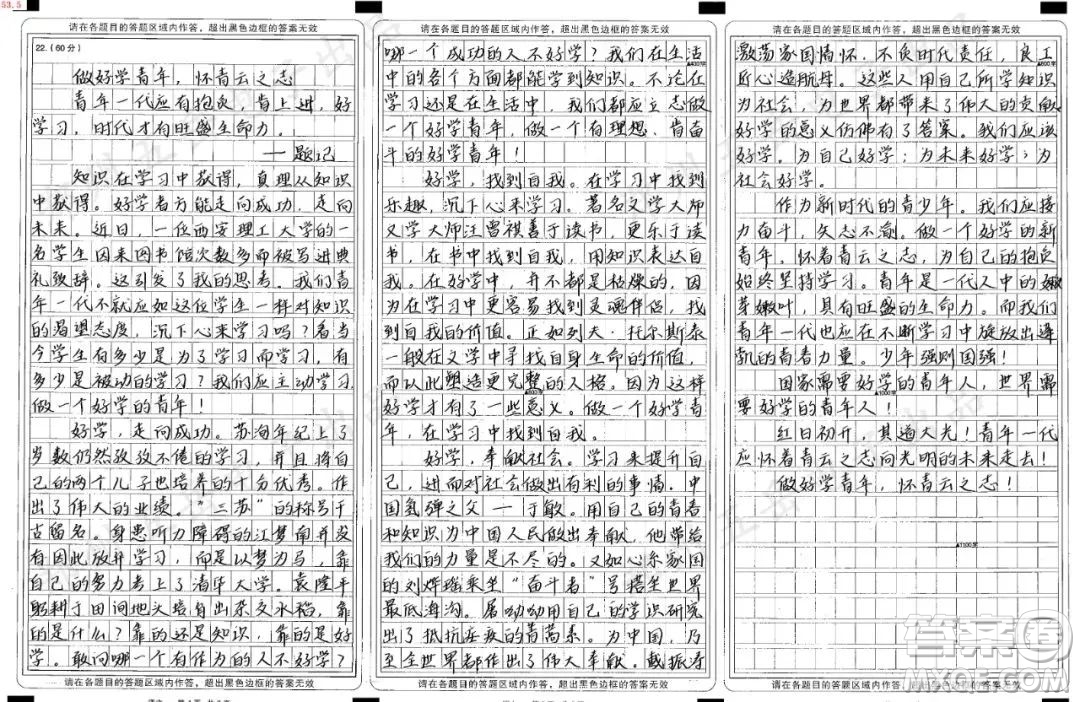 53.5
请在各题目的答题区域内作答，超出黑色边框的答案无效
22.(60分)
做好学青年，怀青云之志
青年一代应有抱负，肯上进，好
学习，时代才有旺盛生命力。
——题记
知识在学习中获得，真理从知识
中获得。好学者方能走向成功，走向
未来。近日，一位西安理工大学的一
名学生因来图书馆次数多而被写进典
礼致辞。这引发了我的思考。我们青
年一代不就应如这位学生一样对知识
的渴望态度，沉下心来学习吗？看当
今学生有多少是为了学习而学习，有
多少是被动的学习？我们应主动学习，
做一个好学的青年！
好学，走向成功。苏洵年纪上了
岁数仍然孜孜不倦的学习，并且将自
己的两个儿子也培养的十分优秀。作
出了伟人的业绩。“三苏”的称号千
古留名。身患听力障碍的江梦南并没
有因此放弃学习，而是以梦为马，靠
自己的努力考上了清华大学。袁隆平
躬耕于田间地头培育出杂交水稻，靠
的是什么？靠的还是知识，靠的是好
学。敢问哪一个有作为的人不好学？
请在各题目的答题区域内作答，超出黑色边框的答案无效
请在各题目的答题区域内作答，超出黑色边框的答案无效
哪一个成功的人不好学？我们在生活
中的各个方面都能学到知识。不论在
学习还是在生活中，我们都应立志做
一个好学青年，做一个有理想、肯奋
斗的好学青年！
好学，找到自我。在学习中找到
乐趣，沉下心来学习。著名文学大师
文学大师汪曾祺善于读书，更乐于读
书，在书中找到自我，用知识表达自
我。在好学中，并不都是枯燥的，因
为在学习中更容易找到灵魂伴侣，找
到自我的价值。正如列夫·托尔斯泰
一般在文学中寻找自身生命的价值，
而以此塑造更完整的人格。因为这样
好学才有了一些意义。做一个好学青
年，在学习中找到自我。
好学，奉献社会。学习来提升自
己，进而对社会做出有利的事情。中
国氢弹之父——于敏。用自己的青春
和知识为中国人民做出奉献，他带给
我们的力量是不尽的。又如心系家国
的刘烨瑶乘坐“奋斗者”号搭坐世界
最低海沟。屠呦呦用自己的学识研究
出了抵抗疟疾的青蒿素。为中国，乃
至全世界都作出了伟大奉献。戴振涛
请在各题目的答题区域内作答，超出黑色边框的答案无效
请在各题目的答题区域内作答，超出黑色边框的答案无效
激荡家国情怀，不负时代责任，良工
匠心造航母。这些人用自己所学知识
为社会，为世界都带来了伟大的贡献
好学的意义仿佛有了答案。我们应该
好学。为自己好学；为未来好学；为
社会好学。
作为新时代的青少年。我们应接
力奋斗，矢志不渝。做一个好学的新
青年，怀着青云之志，为自己的抱负
始终坚持学习。青年是一代人中的嫩
芽嫩叶，具有旺盛的生命力。而我们
青年一代也应在不断学习中旋放出逢
凯的青春力量。少年强则国强！
国家需要好学的青年人，世界需
要好学的青年人！
红日初开，其道大光！青年一代
应怀着青云之志向光明的未来走去！
做好学青年，怀青云之志！
▲1100字
请在各题目的答题区域内作答，超出黑色边框的答案无效
答案圈
MXQE.COM